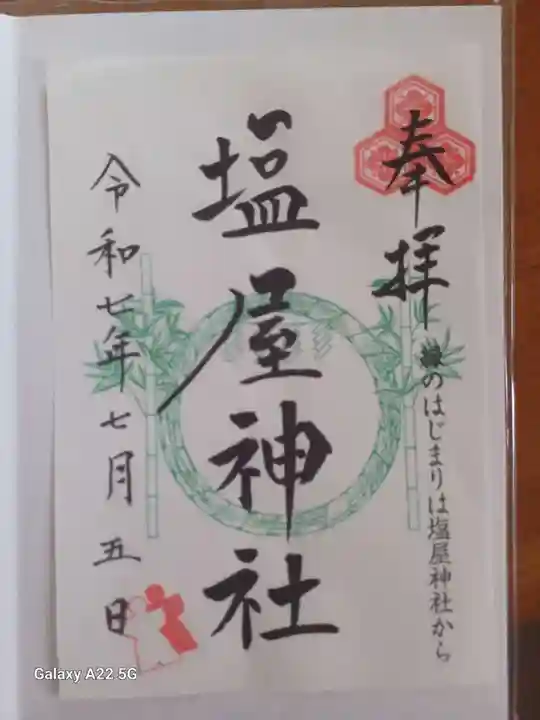 奉拝
縁のはじまりは塩屋神社から
塩屋神社
令和七年七月五日
Galaxy A22 5G